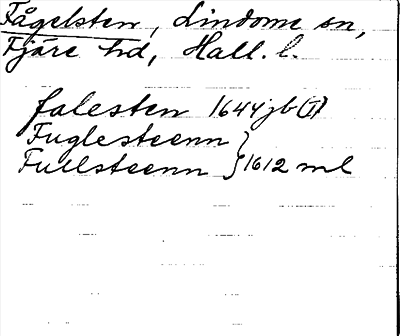 Fågelsten, Lindome sn,
Fjäre hd, Hall. l.
falesten 1644 jb (I)
Fuglesteenn }
Fullsteenn } 1612 ml